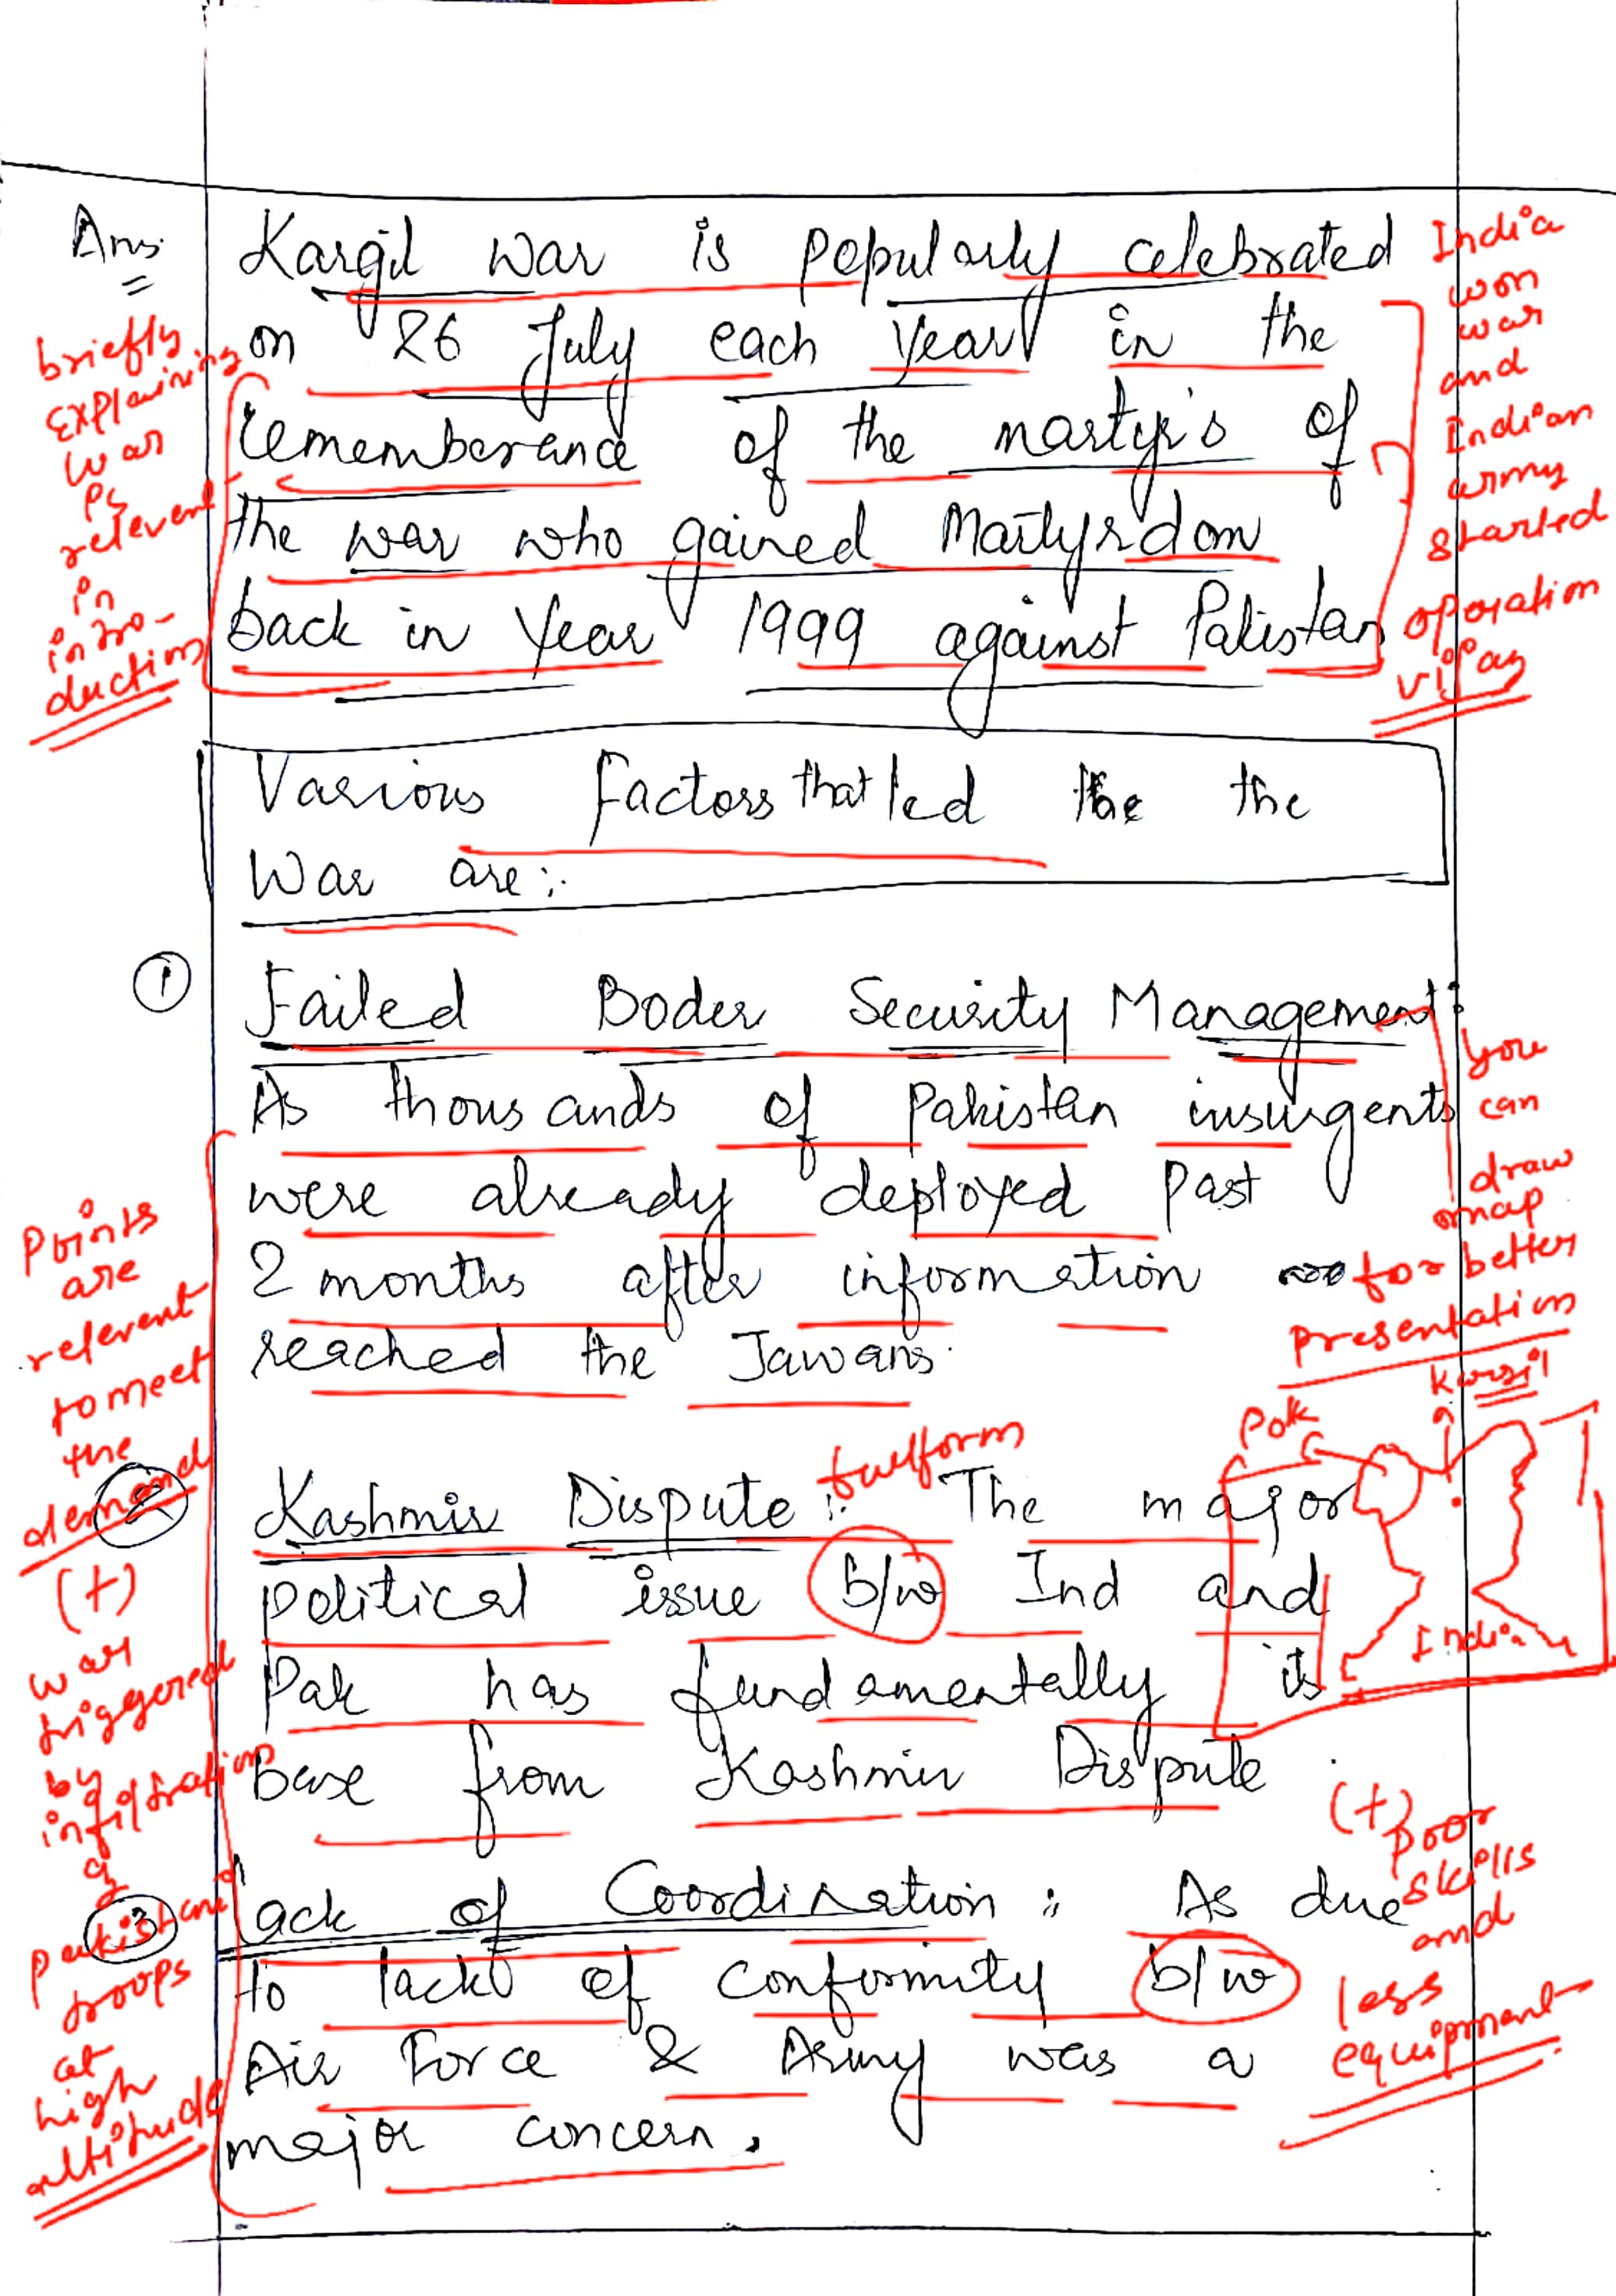 Ans.
Kargil war is popularly celebrated
on 26 July each year in the
rememberance of the martyr's of
the war who gained Martyrdom
back in Year 1999 against Pakistan
briefly
explaining
war
is
relevent
in
intro-
duction
India
won
war
and
Indian
army
started
operation
vijay
Various factors that led the the
War are:
① Failed Boder Security Management:
As thousands of Pakistan insurgents
were already deployed past
2 months after information
reached the Jawans.
you
can
draw
map
for better
presentation
Kargil
Pok
India
Points
are
relevent
to meet
the
demand
(+)
war
triggered
by
infiltration
of
pakistani
troops
at
high
altitude
fullform
② Kashmir Dispute:. The major
political issue b/w Ind and
Pak has fundamentally is
Base from Kashmir Dispute.
③ Lack of Coordination: As due
to lack of conformity b/w
Air Force & Army was a
major concern.
(+)
poor
skills
and
less
equipment